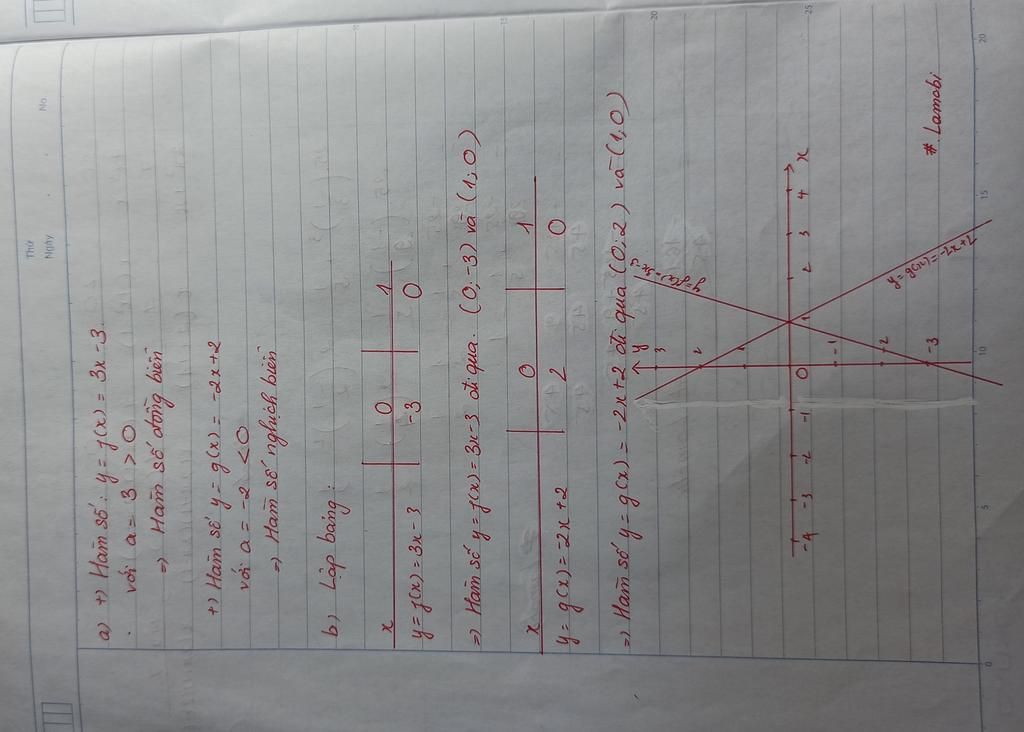 Thứ
Ngày
No.
a) +) Hàm số: y = f(x) = 3x - 3
với a = 3 > 0
=) Hàm số đồng biến
+) Hàm số y = g(x) = -2x + 2
với a = -2 < 0
=) Hàm số nghịch biến
b) Lập bảng:
x 0 1
y = f(x) = 3x - 3 -3 0
=) Hàm số y = f(x) = 3x - 3 đi qua (0; -3) và (1; 0)
x 0 1
y = g(x) = -2x + 2 2 0
=) Hàm số y = g(x) = -2x + 2 đi qua (0; 2) và (1; 0)
y
y = f(x) = 3x-3
3
2
1
-4 -3 -2 -1 0 1 2 3 4 x
-1
2
-3
y = g(x) = -2x+2
# Lamabi
0 5 10 15 20
10 15 20 25